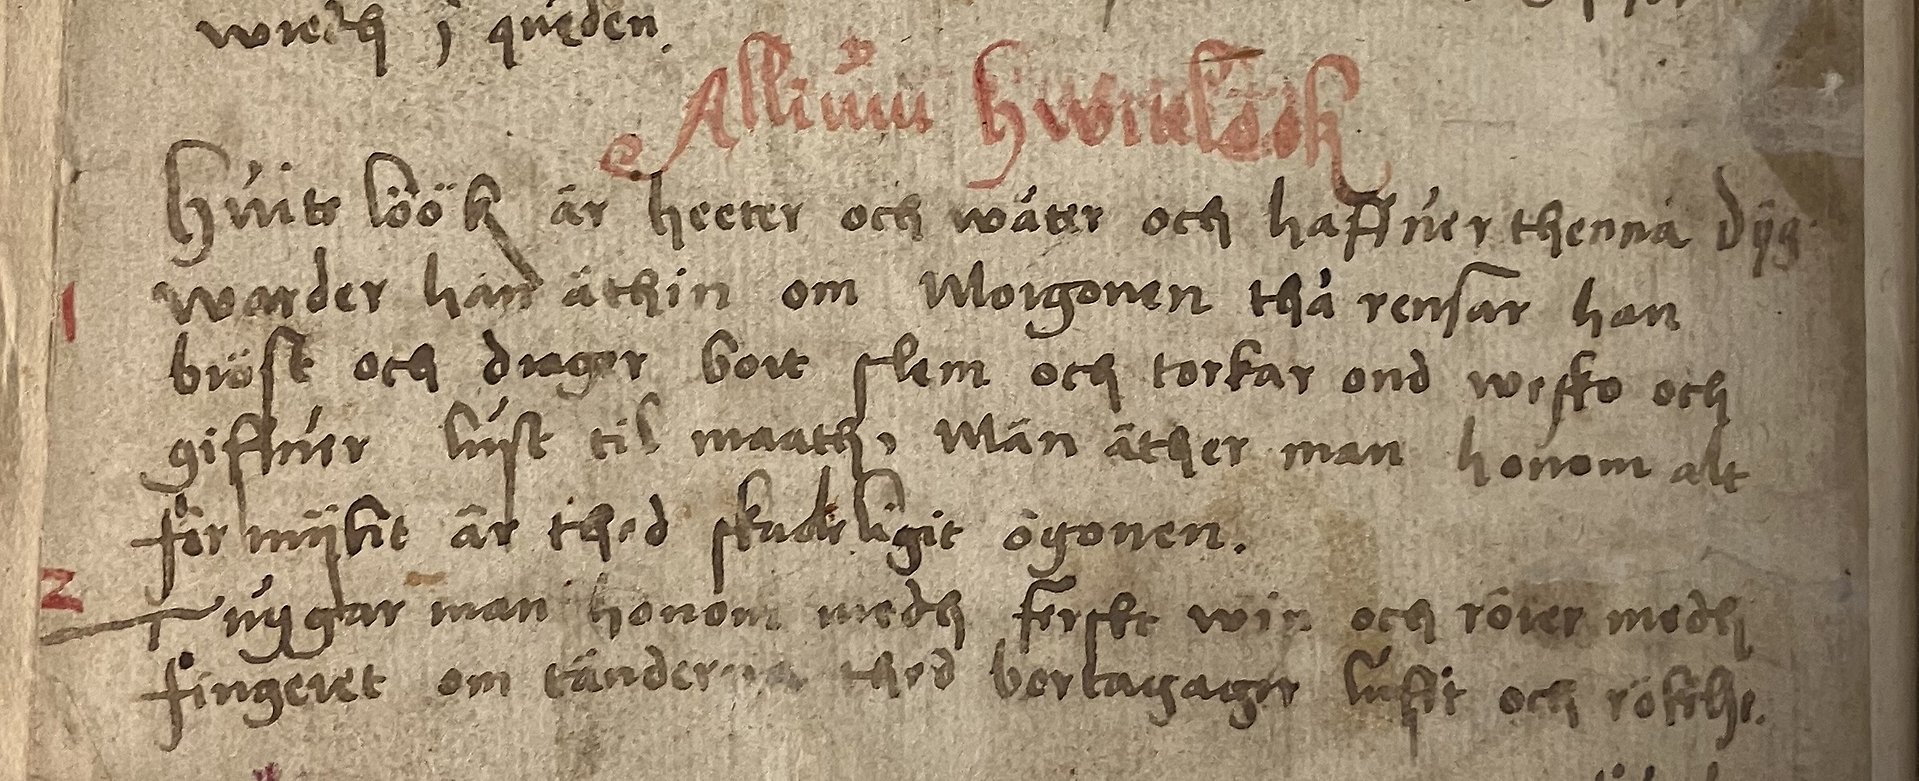 wredh j queden.
Allium Hwitelöök
Huite löök är heeter och wåter och haffuer thenna dyg
1 warder han äthin om Morgonen thå rensar han
bröst och drager bort slem och torkar ond wesko och
giffuer lust til maath, Män äther man honom alt
för mykit är thed skadeligit ögonen.
2 Tuygar man honom medh ferskt win och rörer medh
fingeret om tänderna thed bortagager lufft och rökthe.